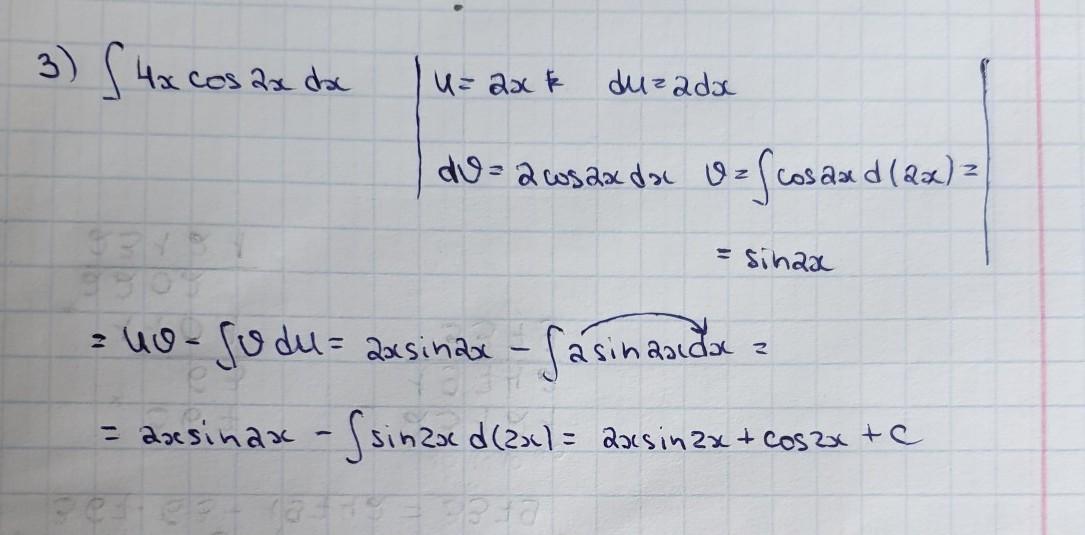 3) ∫ 4x cos 2x dx | u = 2x du = 2dx |
| dϑ = 2 cos 2x dx ϑ = ∫ cos 2x d(2x) = |
= sin 2x
= uϑ - ∫ ϑ du = 2x sin 2x - ∫ 2 sin 2x dx =
= 2x sin 2x - ∫ sin 2x d(2x) = 2x sin 2x + cos 2x + C